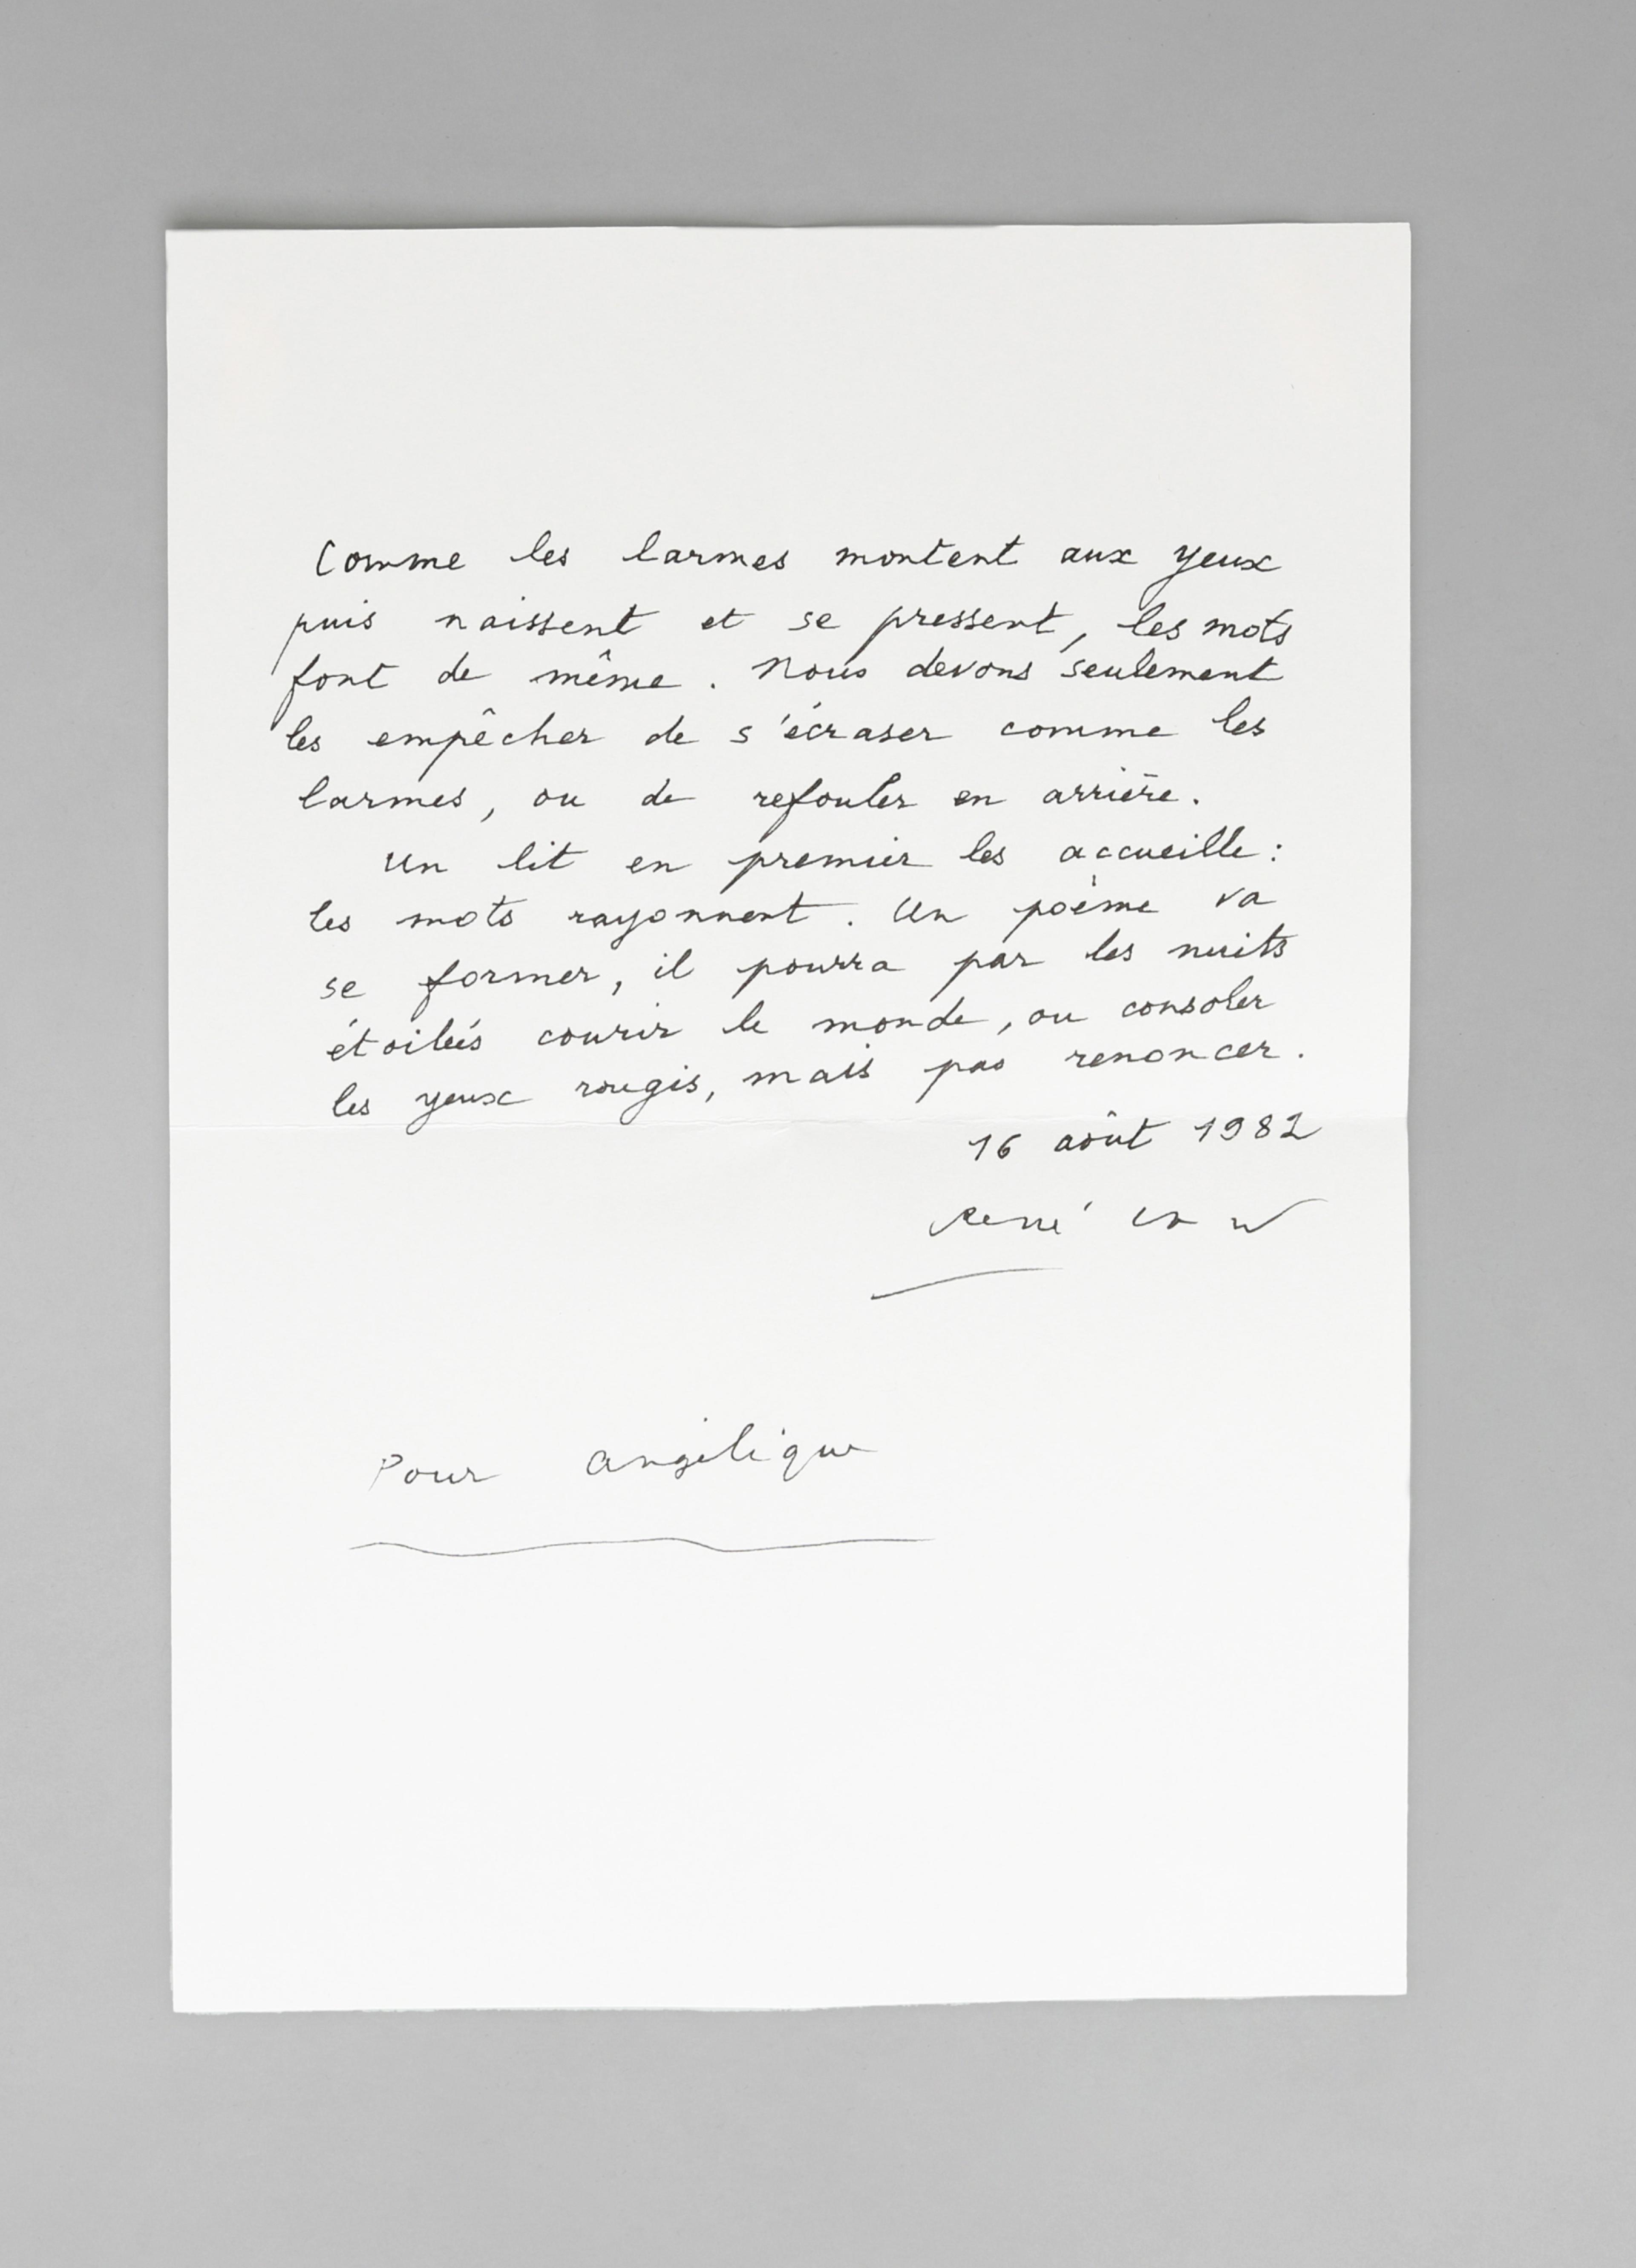 Comme les larmes montent aux yeux
puis naissent et se pressent, les mots
font de même. Nous devons seulement
les empêcher de s'écraser comme les
larmes, ou de refouler en arrière.
Un lit en premier les accueille :
les mots rayonnent. Un poème va
se former, il pourra par les nuits
étoilées courir le monde, ou consoler
les yeux rougis, mais pas renoncer.
16 août 1982
René
Pour Angélique